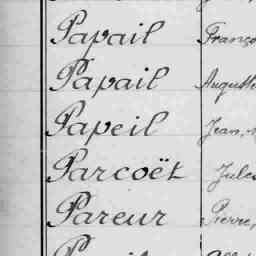 Papail
Papail Auguste
Papeil Jean,
Parcoët Jules
Pareur Pierre,